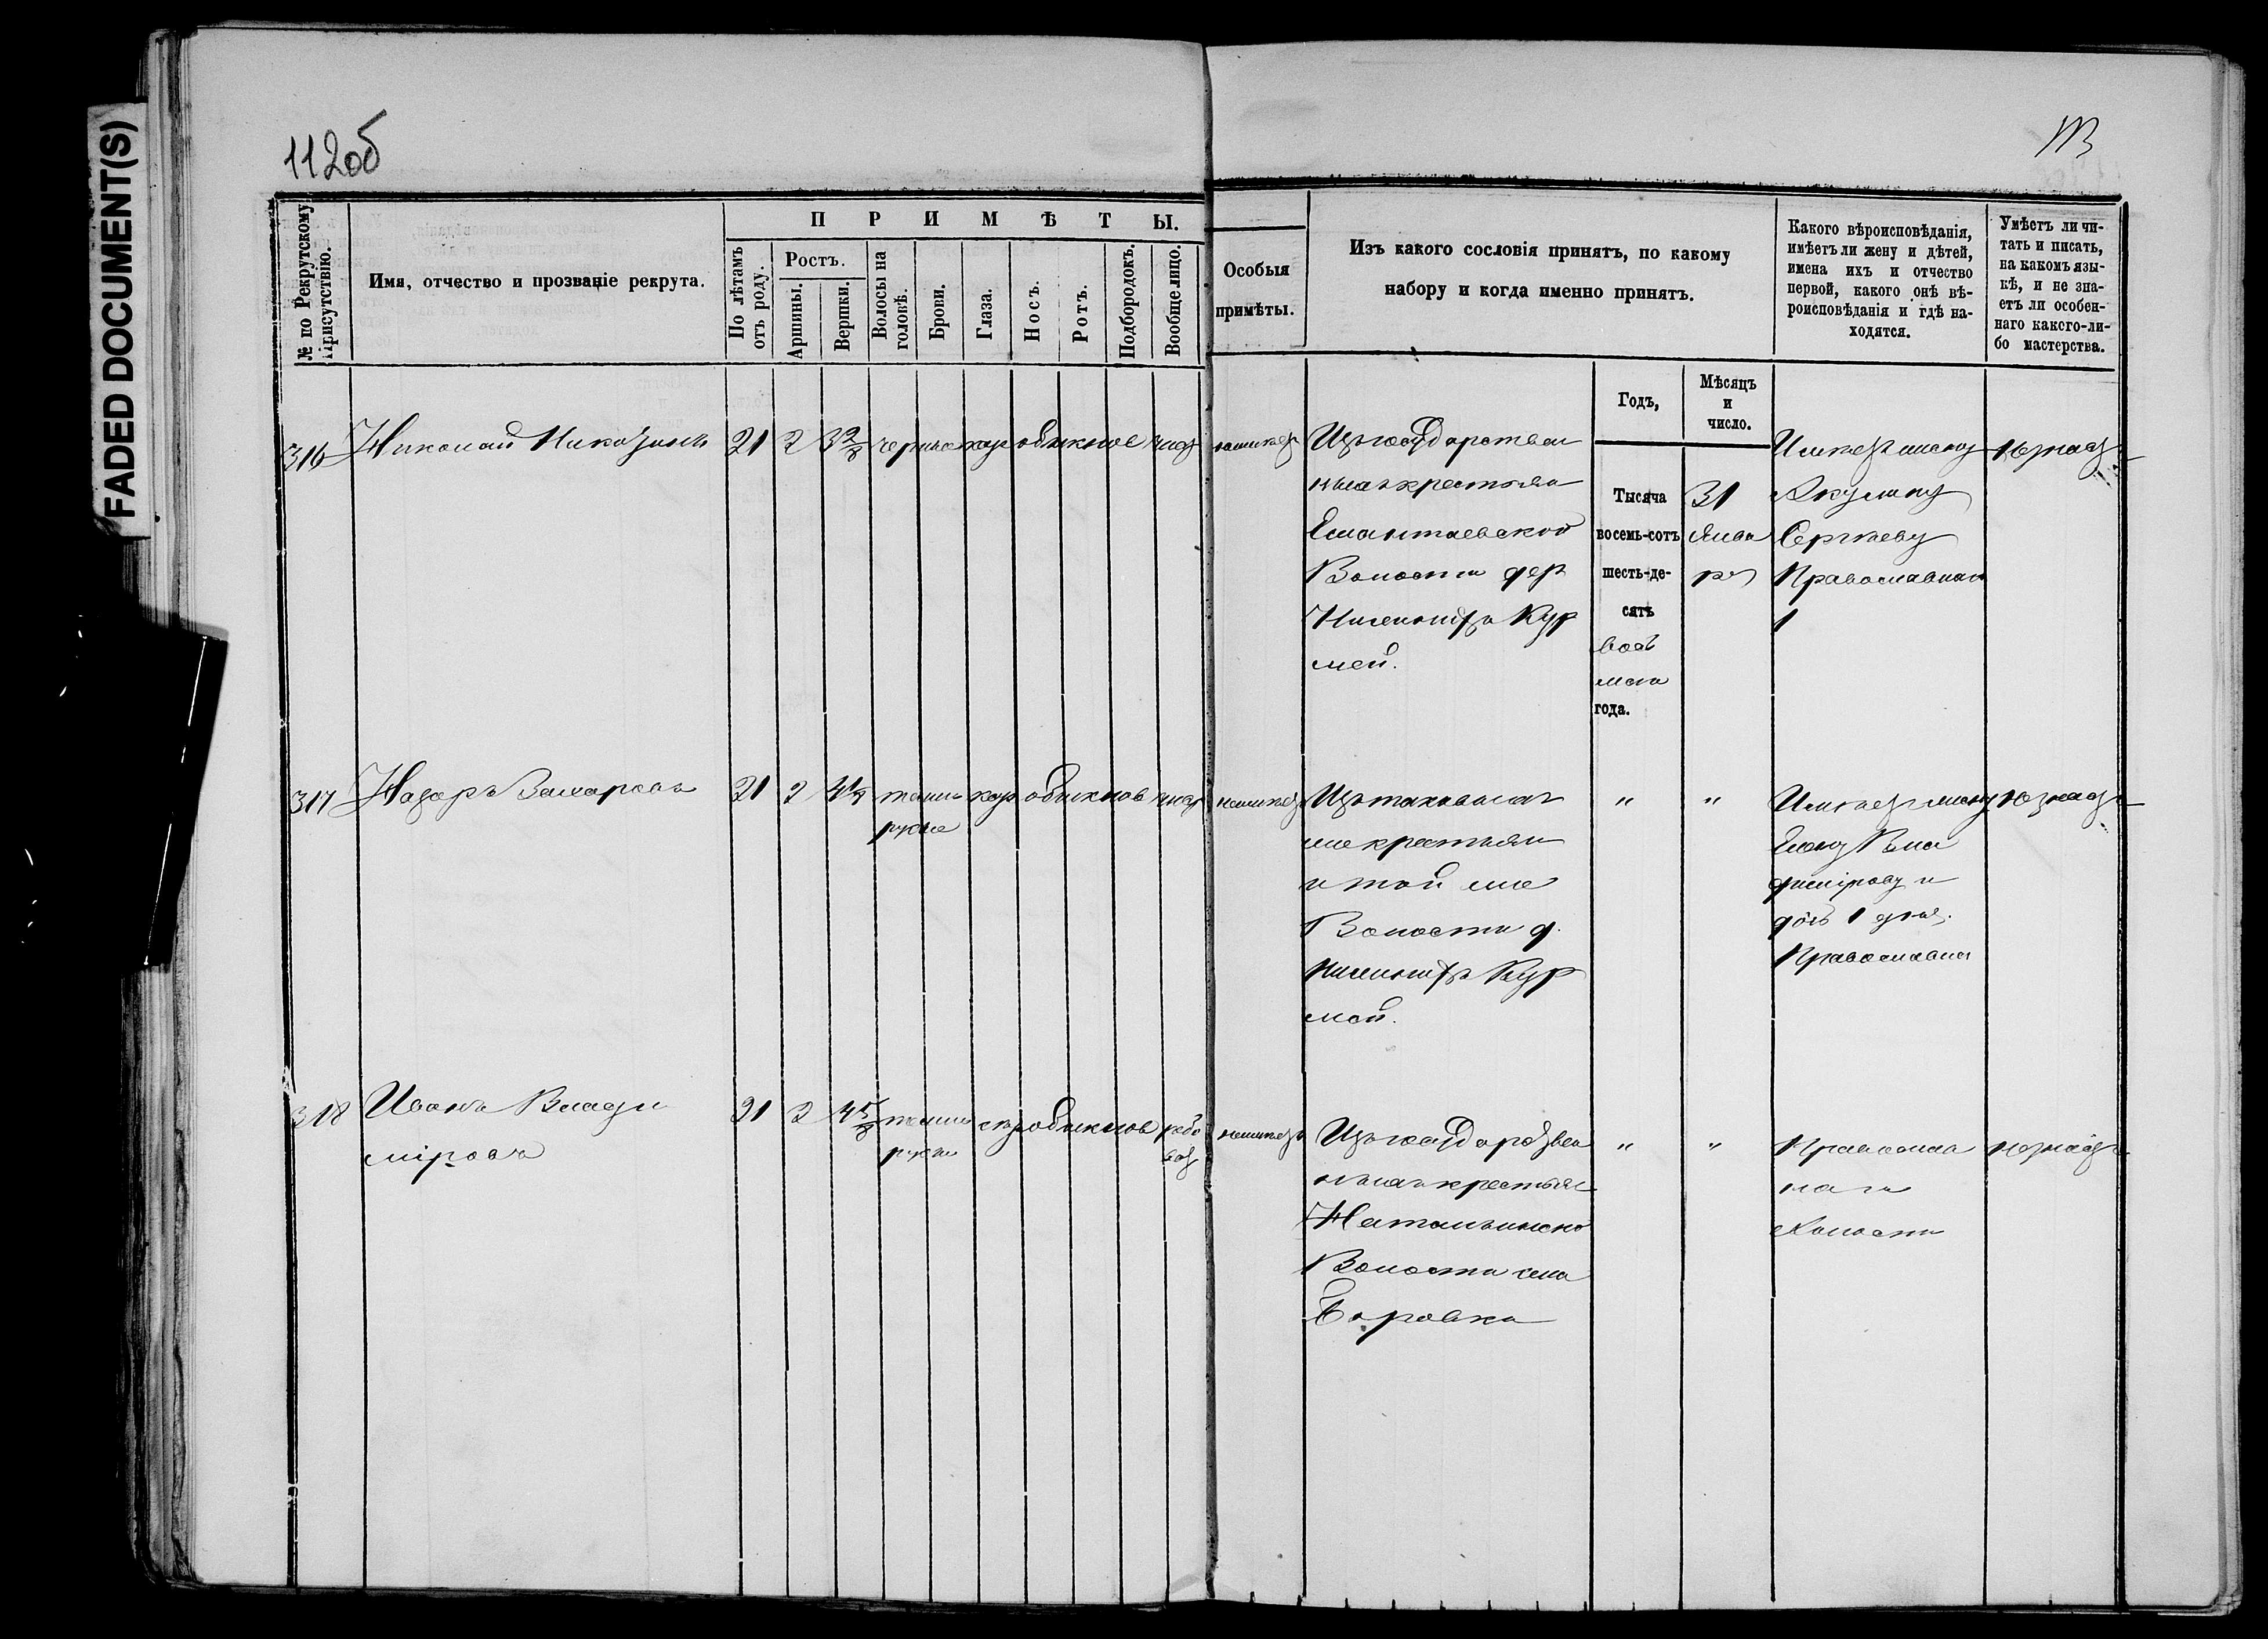 FADED DOCUMENT(S)
112об
113
№ по Рекрутскому Присутствію.
Имя, отчество и прозваніе рекрута.
ПРИМѢТЫ.
По лѣтамъ отъ роду.
Ростъ.
Аршины.
Вершки.
Волосы на головѣ.
Брови.
Глаза.
Носъ.
Ротъ.
Подбородокъ.
Вообще лицо.
Особыя
примѣты.
Изъ какого сословія принятъ, по какому
набору и когда именно принятъ.
Годъ,
Мѣсяцъ
и
число.
Какого вѣроисповѣданія,
имѣетъ ли жену и дѣтей,
имена ихъ и отчество
первой, какого онѣ вѣ-
роисповѣданія и гдѣ на-
ходятся.
Умѣетъ ли чи-
тать и писать,
на какомъ язы-
кѣ, и не зна-
етъ ли особен-
наго какого-ли-
бо мастерства.
316 Николай 21 2 3 2/8 черные кар обыкнов чис неимѣе Изъ государствен
ныхъ крестьян
Емантаевской
Волости дер
Нисенштъ Кур
мей.
Тысяча
восемь-сотъ
шесть-де-
сять
вось
мого
года.
31
Янва
ря
Имѣетъ жену
Акулину
Сергѣеву
Православна
го
незнае
317 Назаръ Захаровъ 21 2 темно кар обыкнов чис неимѣе
русые
Изъ таковыхъ
же крестьян
и той же
Волости д.
Нисенштъ Кур
мей.
" "
Имѣетъ жену
Елену Вла
димірову и
дочь 1 года
Православна
незнае
318 Иванъ Влади
міровъ
21 2 4 5/8 темно сѣр обыкнов рябо
русые ват
неимѣе
Изъ государствен
ныхъ крестьян
Натальинско
Волости села
Боровка
" "
Православ
наго
Холостъ
незнае